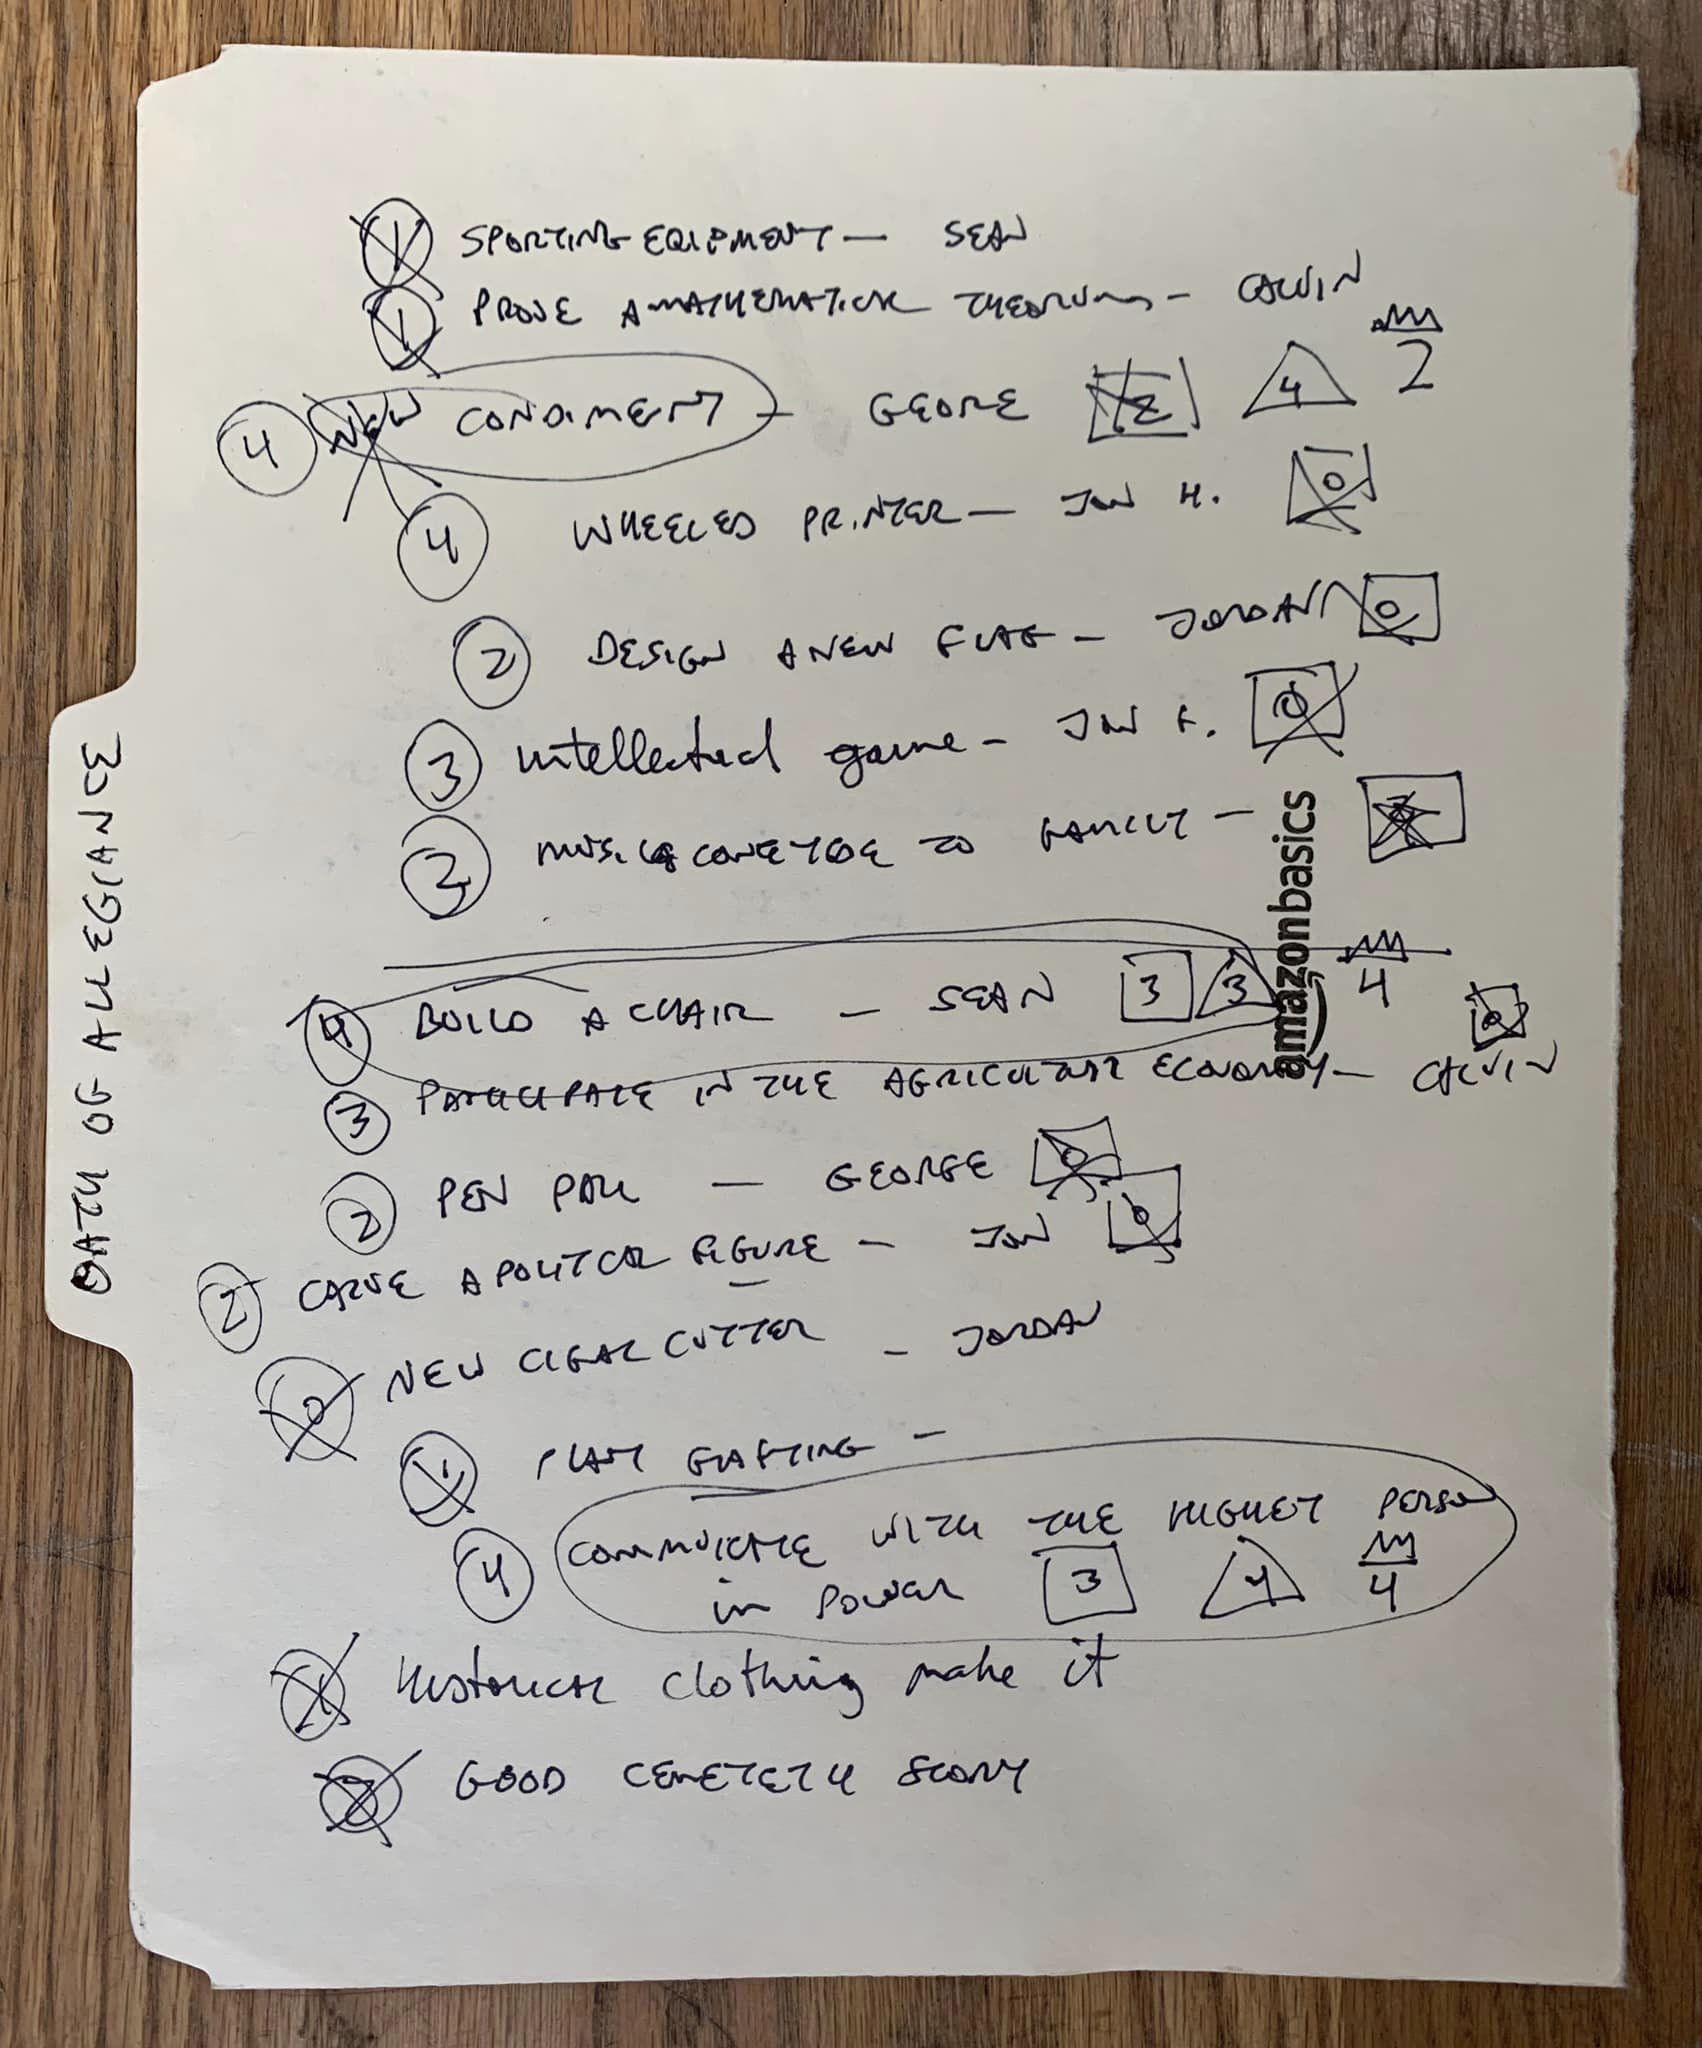 OATH OF ALLEGIANCE
1 SPORTING EQUIPMENT — SEAN
1 PROVE A MATHEMATICAL — CALVIN
4 NEW CONDIMENT — GEORE 2 4 2
4 WHEELED PRINTER — JON H. 0
2 DESIGN A NEW FLAG — JORDAN 0
3 intellectual game — JON 0
TO FAMILY —
4 BUILD A CHAIR — SEAN 3 3 4
3 PARTICIPATE IN THE AGRICULTURE ECONOMY — CALVIN 0
2 PEN PALL — GEORGE 0
2 CARVE A POLITCAL FIGURE — JON 0
0 NEW CIGAR CUTTER — JORDAN
1 PLANT GRAFTING —
4 COMMUNICATE WITH THE HIGHET PERSON
in POWER 3 4 4
1 HISTORICAL clothing make it
GOOD CEMETETY STORY
amazonbasics